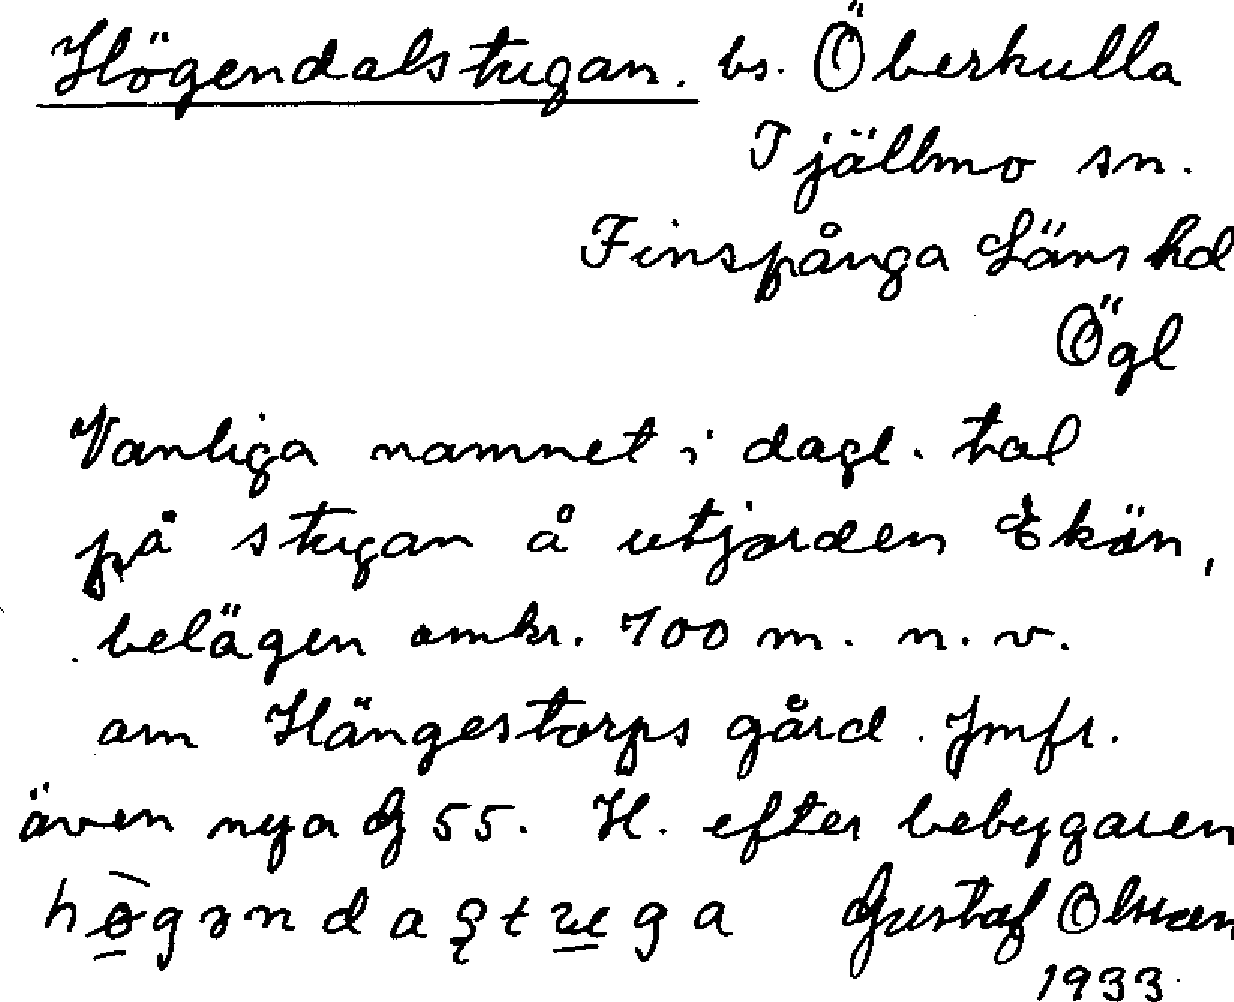 Högendalstugan. bs. Överkulla
Tjällmo sn.
Finspånga Läns hd
Ögl
Vanliga namnet i dagl. tal
på stugan å utjorden Ekön,
belägen omkr. 700 m. n. v.
om Hängestorps gård. Jmfr.
även nya G 55. H. efter bebygaren
högəndaştuga Gustaf Olsson
1933